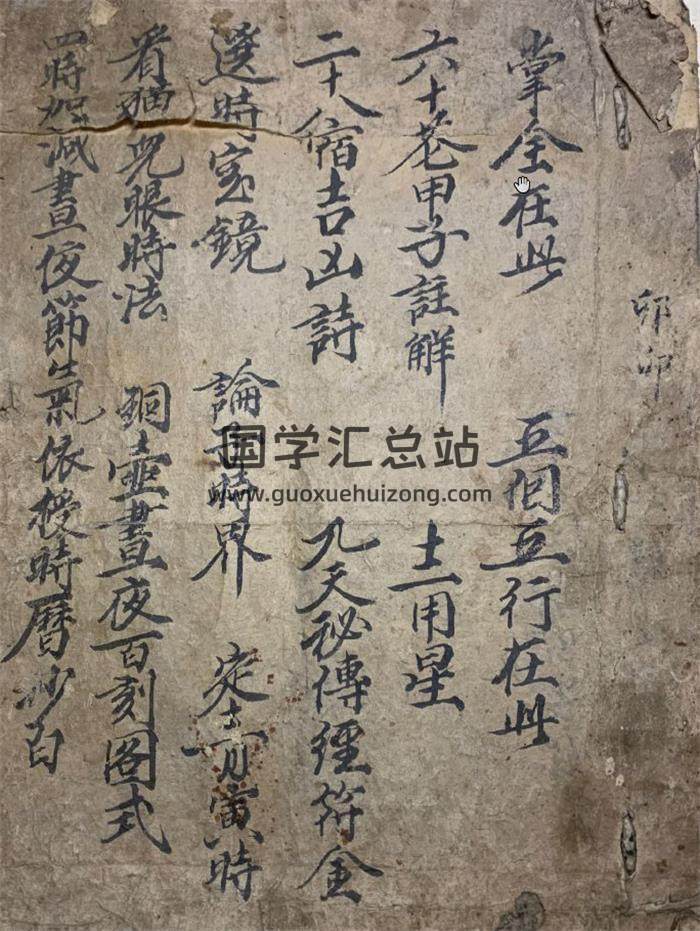 卯卯
掌全在此 五個五行在此
六十花甲子註解 用星
二十八宿吉凶詩 九天秘傳經符金
選時宝鏡 論子時界 定十二月寅時
看猫兒眼時法 銅壺晝夜百刻圖式
四時加減晝夜節氣依授時曆
国学汇总站
www.guoxuehuizong.com